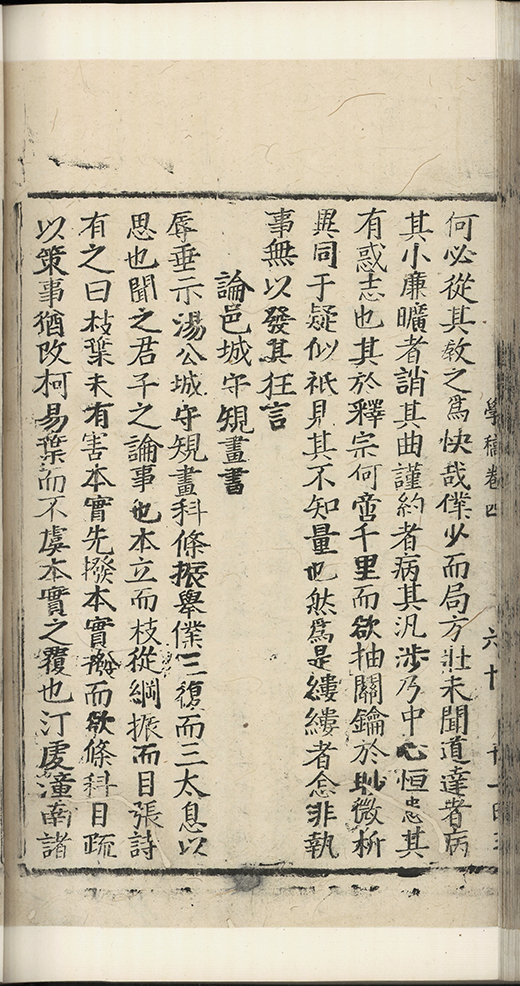 學稿卷四
六十
何必從其教之爲快哉僕少而局方壯未聞道達者病
其小廉曠者誚其曲謹約者病其汎涉乃中心恒患其
有惑志也其於釋宗何啻千里而欲抽關鑰於眇微析
異同于疑似祇見其不知量也然爲是縷縷者念非執
事無以發其狂言
論邑城守規畫書
辱垂示湯公城守規畫科條振舉僕三復而三太息以
思也聞之君子之論事也本立而枝從綱振而目張詩
有之曰枝葉未有害本實先撥本實撥而欲條科目疏
以策事猶改柯易葉而不虞本實之覆也汀處潼南諸